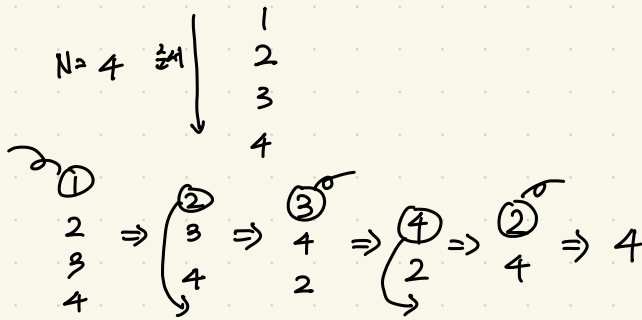 N=4 순서
1
2
3
4
1
2
3
4
⇒
2
3
4
⇒
3
4
2
⇒
4
2
⇒
2
4
⇒
4